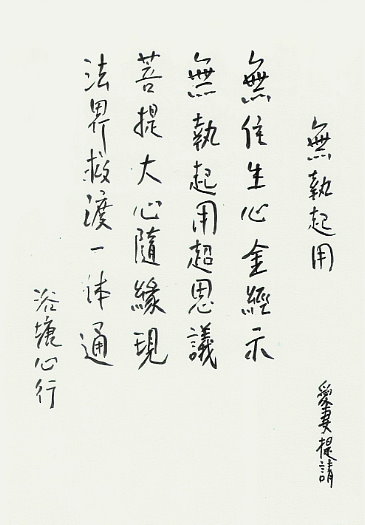 無執起用
愛妻提請
無住生心金經示
無執起用超思議
菩提大心隨緣現
法界救渡一体通
浴塘心行